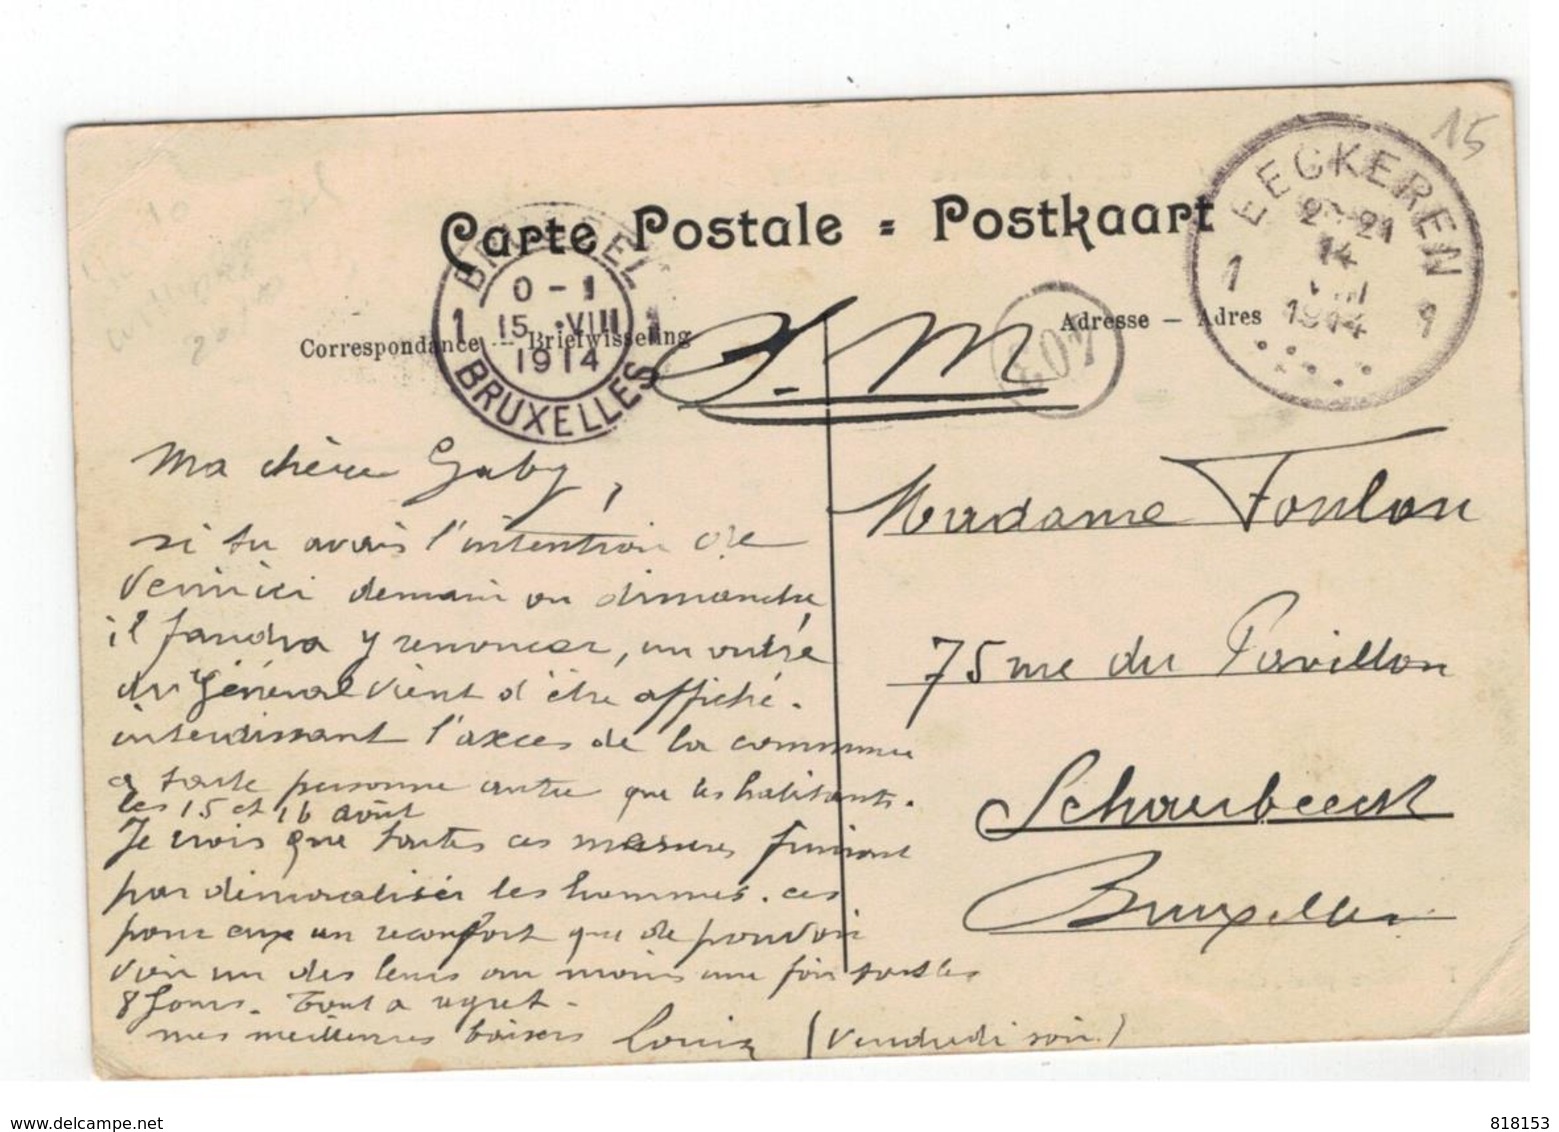 15
EECKEREN
20-21
14
VIII
1914
1 1
Carte Postale = Postkaart
BRUSSEL
0 - 1
1 15 VIII 1
1914
BRUXELLES
Correspondance — Briefwisseling
Adresse — Adres
S. M
403
Ma chère Gaby,
si tu avais l'intention de
venir ici demain ou dimanche
il faudra y renoncer, un ordre
du Général vient d'être affiché.
interdissant l'accès de la commune
a toute personne autre que les habitants.
les 15 et 16 août
Je crois que toutes ces mesures finiront
par démoraliser les hommes. ces
pour eux un réconfort que de pouvoir
voir un des leurs au moins une fois tout les
8 Jours. Tout a regret -
mes meilleures baisers Louis (Vendredi soir.)
Madame Foulon
75 rue du Pavillon
Schaerbeeck
Bruxelles
www.delcampe.net
818153